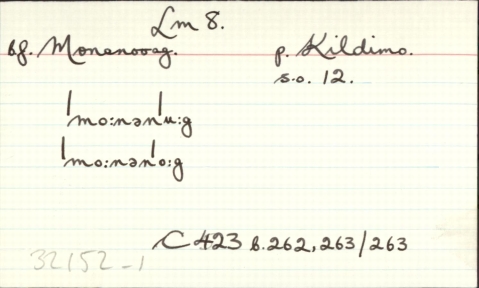 Lm 8.
Bf. Monanooag. p. Kildimo.
s.o. 12.
ˈmo:nənˈu:g
ˈmo:nənˈo:g
C 423 B.262,263/263
32152-1